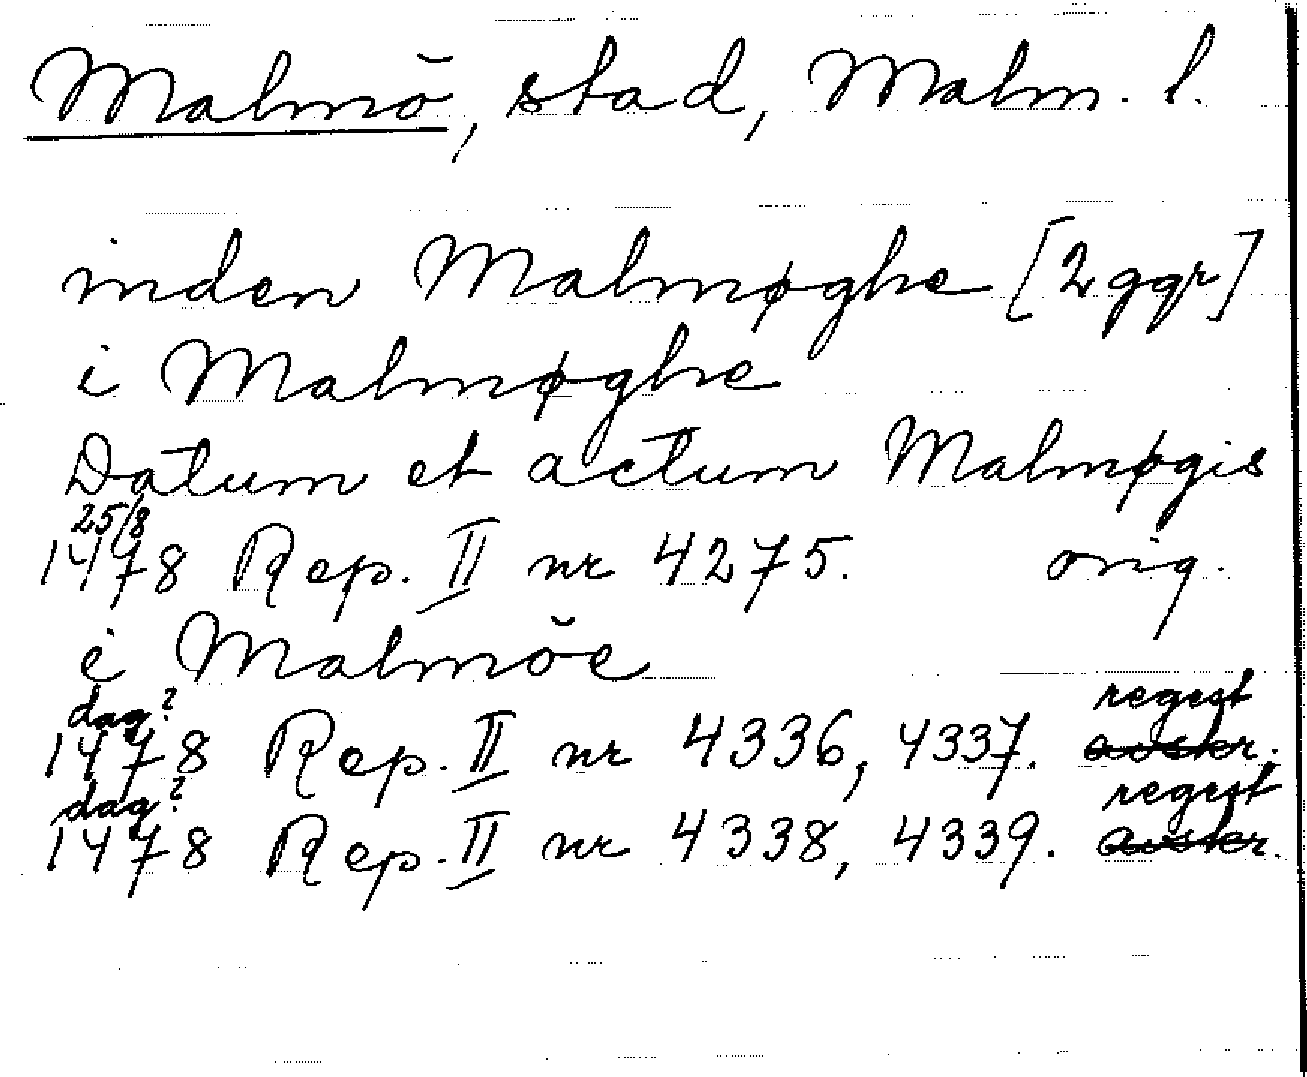 Malmö, stad, Malm. l.
inden Malmøghe [2 ggr]
i Malmøghe
Datum et actum Malmøgis
25/8
1478 Rep. II nr 4275. orig.
i Malmöe
dag? regest
1478 Rep. II nr 4336, 4337. avskr.
dag? regest
1478 Rep. II nr 4338, 4339. avskr.